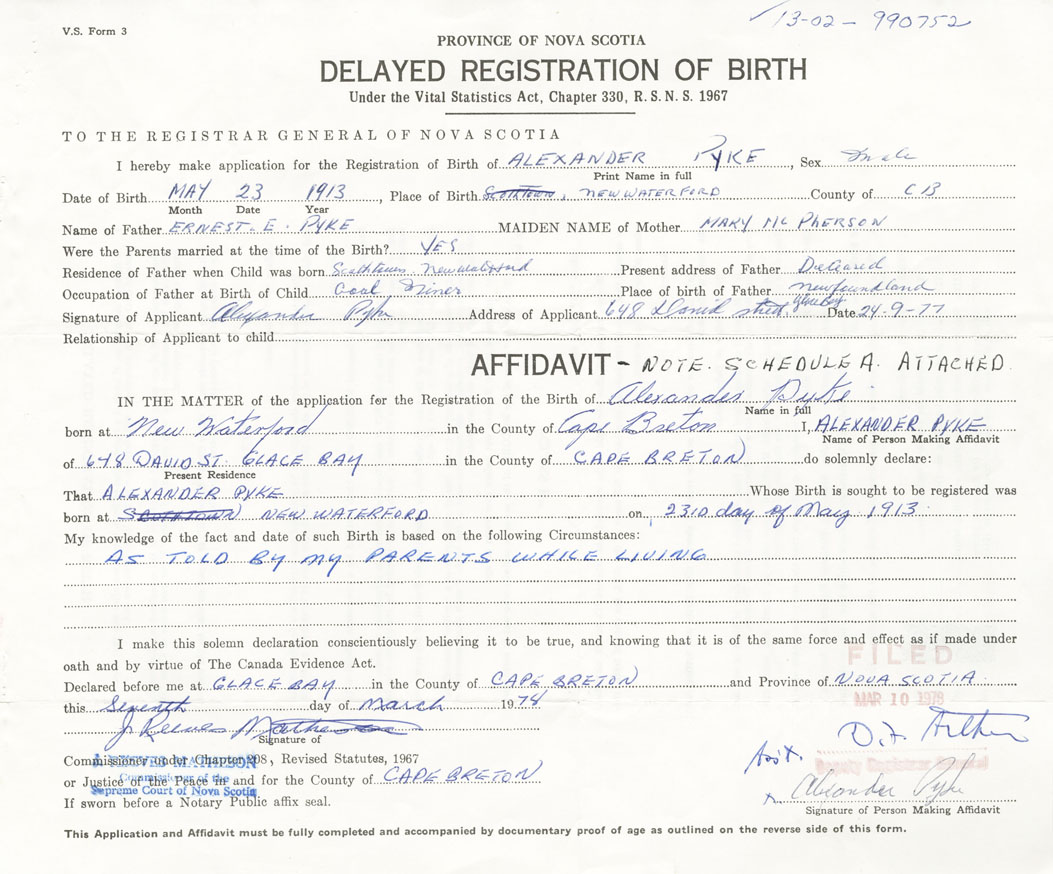 13-02-990752
V.S. Form 3
PROVINCE OF NOVA SCOTIA
DELAYED REGISTRATION OF BIRTH
Under the Vital Statistics Act, Chapter 330, R. S. N. S. 1967
TO THE REGISTRAR GENERAL OF NOVA SCOTIA
I hereby make application for the Registration of Birth of ALEXANDER PYKE, Sex male
Print Name in full
Date of Birth MAY 23 1913, Place of Birth SCOTCHTOWN, NEW WATERFORD County of C B
Month Date Year
Name of Father ERNEST. E. PYKE MAIDEN NAME of Mother MARY MC PHERSON
Were the Parents married at the time of the Birth? YES
Residence of Father when Child was born Scotchtown New Waterford Present address of Father Deceased
Occupation of Father at Birth of Child Coal Miner Place of birth of Father Newfoundland
Signature of Applicant Alexander Pyke Address of Applicant 648 David street, Glace Bay Date 24-9-77
Relationship of Applicant to child
AFFIDAVIT - NOTE. SCHEDULE A. ATTACHED
IN THE MATTER of the application for the Registration of the Birth of Alexander Pyke
Name in full
born at New Waterford in the County of Cape Breton I, ALEXANDER PYKE
Name of Person Making Affidavit
of 648 DAVID ST. GLACE BAY in the County of CAPE BRETON do solemnly declare:
Present Residence
That ALEXANDER PYKE Whose Birth is sought to be registered was
born at SCOTCHTOWN NEW WATERFORD on 23rd day of May 1913
My knowledge of the fact and date of such Birth is based on the following Circumstances:
AS TOLD BY MY PARENTS WHILE LIVING
I make this solemn declaration conscientiously believing it to be true, and knowing that it is of the same force and effect as if made under
oath and by virtue of The Canada Evidence Act.
FILED
Declared before me at GLACE BAY in the County of CAPE BRETON and Province of NOVA SCOTIA
this Seventh day of March 1978
MAR 10 1978
J Reeves Matheson
Signature of
Commissioner under Chapter 208, Revised Statutes, 1967
MATHESON
Commissioner of the
Supreme Court of Nova Scotia
or Justice of the Peace in and for the County of CAPE BRETON
If sworn before a Notary Public affix seal.
Asst.
Deputy Registrar General
Alexander Pyke
Signature of Person Making Affidavit
This Application and Affidavit must be fully completed and accompanied by documentary proof of age as outlined on the reverse side of this form.